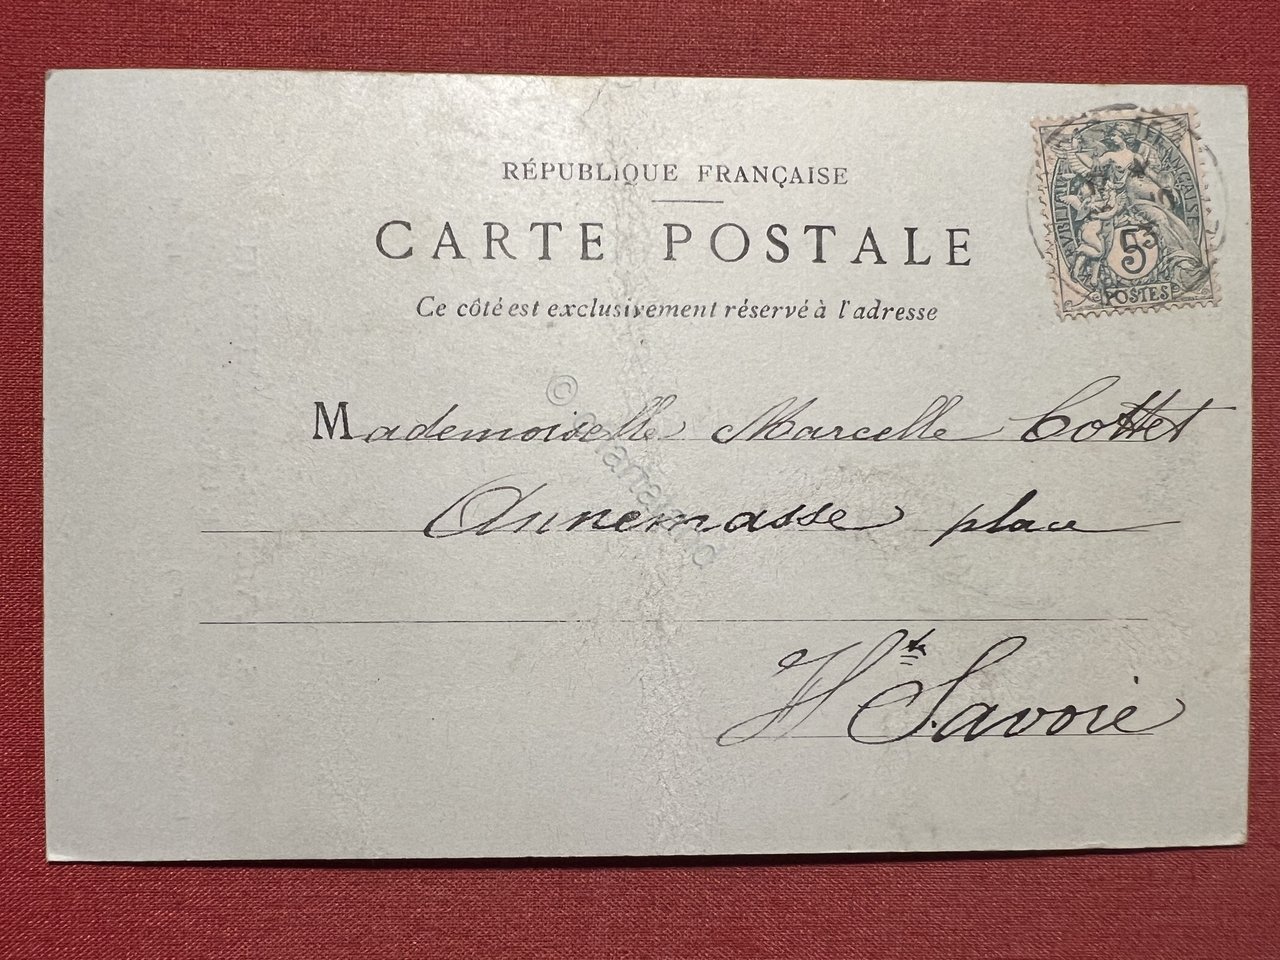 RÉPUBLIQUE FRANÇAISE
CARTE POSTALE
Ce côté est exclusivement réservé à l'adresse
Mademoiselle Marcelle Cottet
Annemasse place
Hte Savoie
RÉPUBLIQUE FRANÇAISE
5c
POSTES